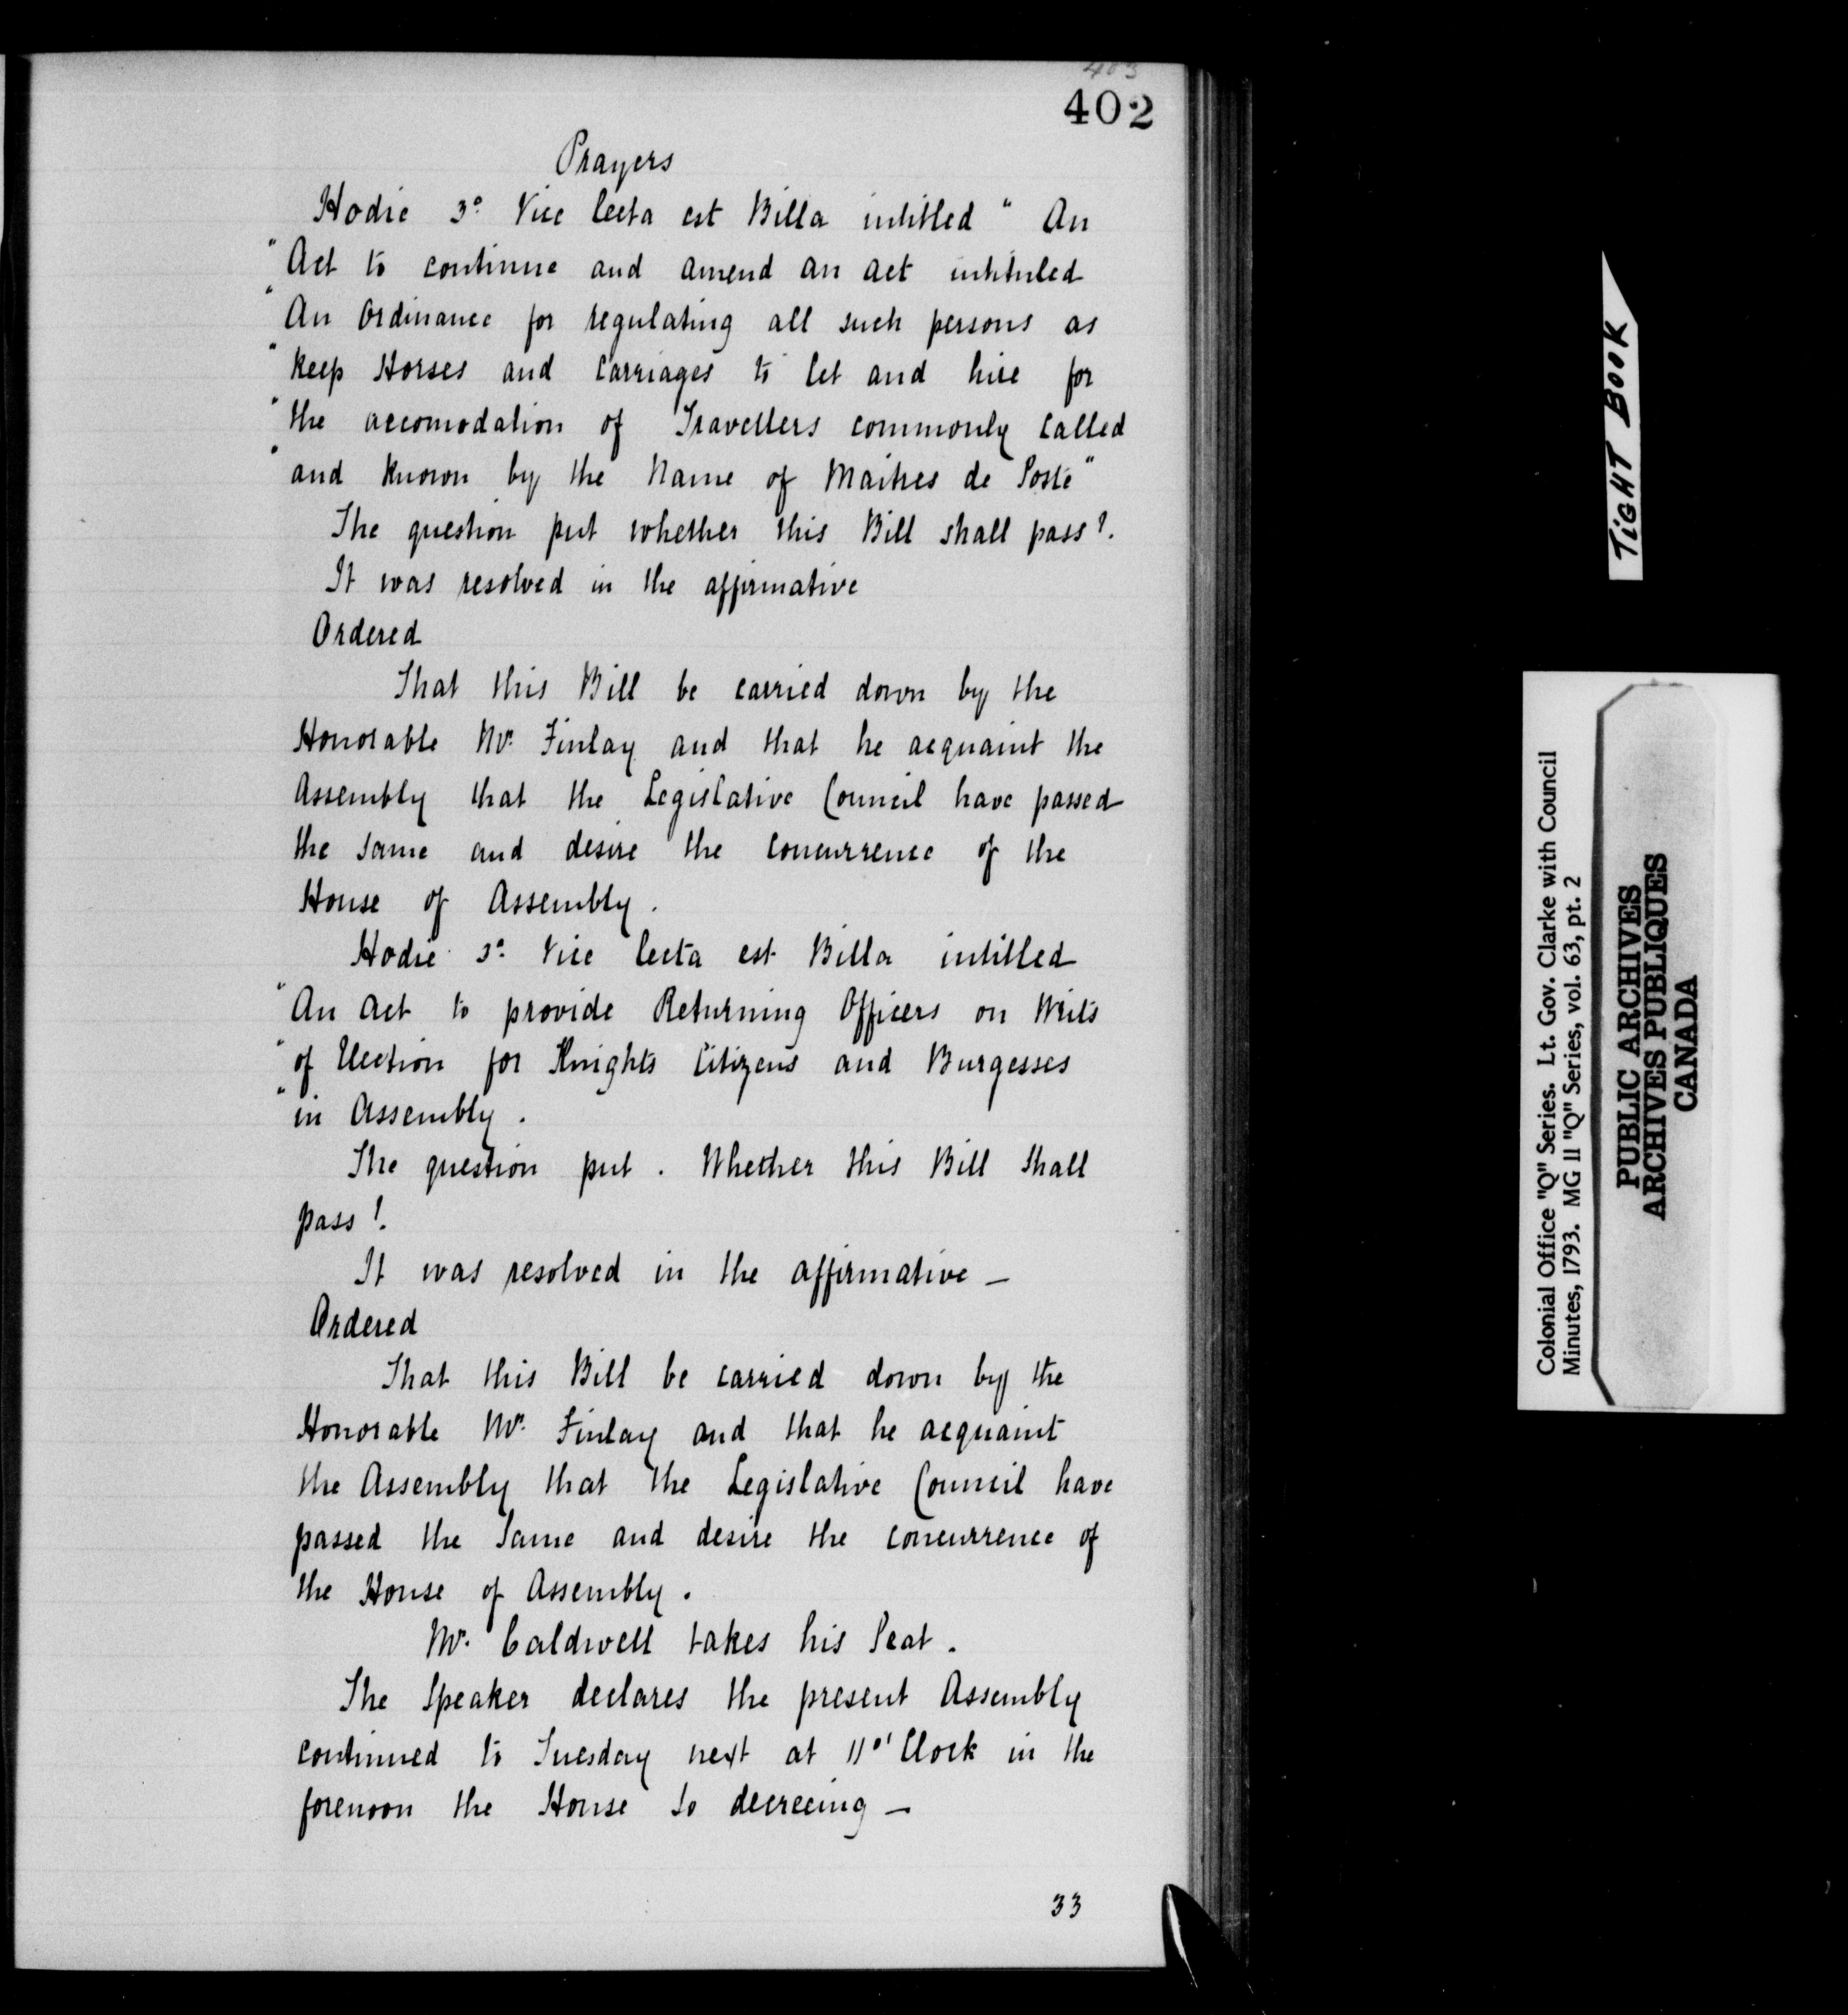 403
402
Prayers
Hodie 3º Vice lecta est Billa intitled " An
" Act to continue and amend an act intituled
" An Ordinance for regulating all such persons as
" keep Horses and Carriages to let and hire for
" the accomodation of Travellers commonly called
" and known by the Name of Maitres de Poste "
The question put whether this Bill shall pass?.
It was resolved in the affirmative
Ordered
That this Bill be carried down by the
Honorable Mr. Finlay and that he acquaint the
Assembly that the Legislative Council have passed
the same and desire the Concurrence of the
House of Assembly.
Hodie 3ª Vice lecta est Billa intitled
" An Act to provide Returning Officers on Writs
" of Election for Knights Citizens and Burgesses
" in Assembly.
The question put. Whether this Bill shall
pass?.
It was resolved in the affirmative —
Ordered
That this Bill be carried down by the
Honorable Mr. Finlay and that he acquaint
the Assembly that the Legislative Council have
passed the Same and desire the concurrence of
the House of Assembly.
Mr. Caldwell takes his Seat.
The Speaker declares the present Assembly
continued to Tuesday next at 11 o' Clock in the
forenoon the House so decreeing —
33
TIGHT BOOK
Colonial Office "Q" Series. Lt. Gov. Clarke with Council
Minutes, 1793. MG 11 "Q" Series, vol. 63, pt. 2
PUBLIC ARCHIVES
ARCHIVES PUBLIQUES
CANADA